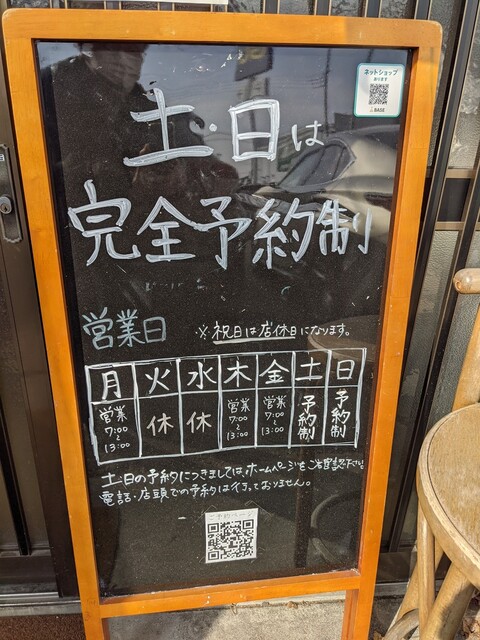 ネットショップ
あります
BASE
土・日は
完全予約制
営業日
※祝日は店休日になります。
月 火 水 木 金 土 日
営業 7:00〜13:00 休 休 営業 7:00〜13:00 営業 7:00〜13:00 予約制 予約制
土・日の予約につきましては、ホームページをご確認下さい。
電話・店頭での予約は行っておりません。
ご予約ページ